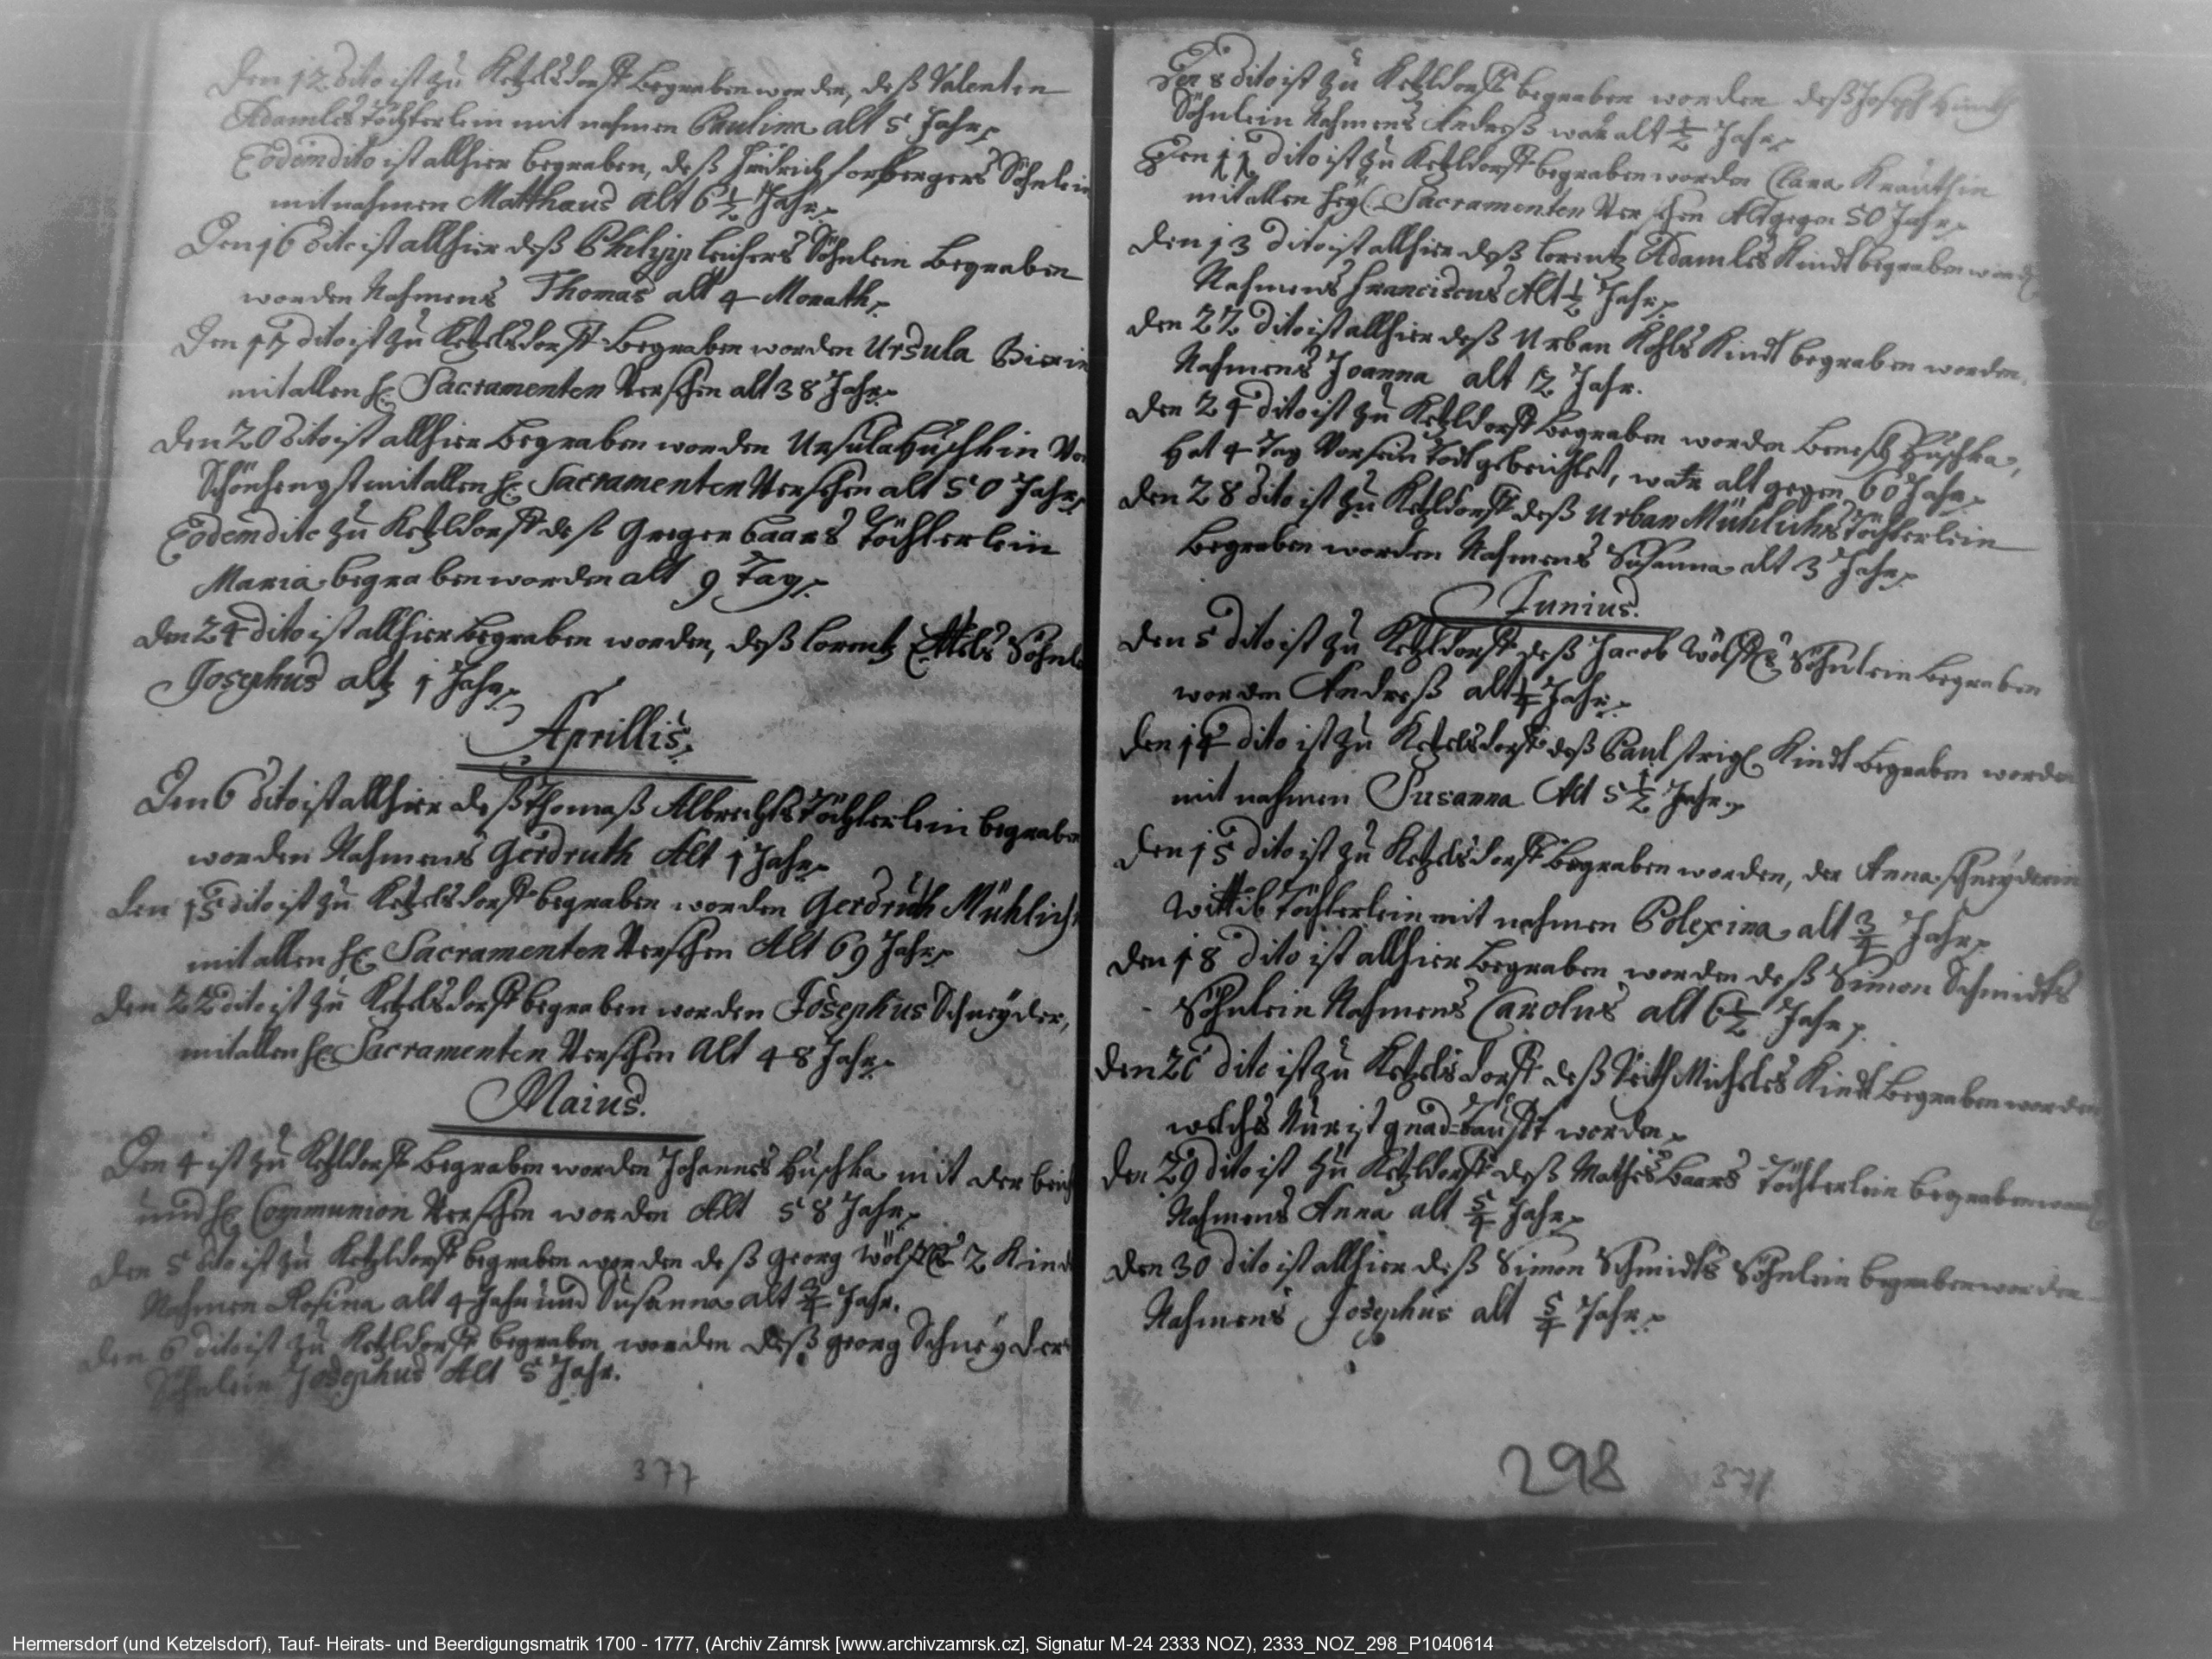 Den 12 dito ist zu Ketzelsdorff Begraben worden, deß Valenten
Adamles Töchterlein mit nahmen Paulina alt 5 Jahr
Eodem dito ist allhier begraben, deß Fridrich forbergers Söhnlein
mit nahmen Matthaus alt 6 1/2 Jahr
Den 16 dito ist allhier deß Philipp leichers Söhnlein Begraben
worden Nahmens Thomas alt 4 Monath
Den 17 dito ist zu Ketzelsdorff Begraben worden Ursula
mit allen H. Sacramenten Versehen alt 38 Jahr
Den 20 dito ist allhier Begraben worden Ursula Huschkin Von
Schönhengst mit allen H. Sacramenten Versehen alt 50 Jahr
Eodem dito zu Ketzldorff deß Greger Baars Töchterlein
Maria begraben worden alt 9 Tag
Den 24 dito ist allhier Begraben worden, deß Lorentz Ettels Söhnle
Josephus alt 1 Jahr
Aprillis.
Den 6 dito ist allhier deß Thomaß Albrechts Töchterlein begraben
worden Nahmens Gerdruth Alt 1 Jahr
Den 15 dito ist zu Ketzelsdorff begraben worden Gerdruth Mühlich
mit allen H. Sacramenten Versehen Alt 69 Jahr
Den 22 dito ist zu Ketzelsdorff begraben worden Josephus Schneyder,
mit allen H. Sacramenten Versehen Alt 48 Jahr
Maius.
Den 4 ist zu Ketzldorff Begraben worden Johannes Huschka mit der beich
und H. Communion Versehen worden Alt 58 Jahr
Den 5 dito ist zu Ketzldorff begraben worden deß Georg Wölffl 2 Kind
Nahmen Rosina alt 4 Jahr und Susanna alt 3/4 Jahr.
Den 6 dito ist zu Ketzldorff begraben worden deß georg Schneyders
Söhnlein Josephus Alt 5 Jahr.
377
Den 8 dito ist zu Ketzldorff begraben worden deß Joseph
Söhnlein Nahmens Andreß war alt 1/2 Jahr
Den 11 dito ist zu Ketzldorff begraben worden Clara Krauthin
mit allen heyl. Sacramenten Versehen Alt gegen 50 Jahr
Den 13 dito ist allhier deß Lorentz Adamles Kindt begraben word
Nahmens Franciscus Alt 1/2 Jahr
Den 22 dito ist allhier deß Urban Kohls Kindt begraben worden,
Nahmens Joanna alt 12 Jahr.
Den 24 dito ist zu Ketzldorff Begraben worden Benesch Huschka,
Hat 4 Tag Vor sein Todt gebeichtet, war alt gegen 60 Jahr
Den 28 dito ist zu Ketzldorff deß Urban Mühlichs Töchterlein
Begraben worden Nahmens Susanna alt 3 Jahr
Junius.
Den 5 dito ist zu Ketzldorff deß Jacob Wölffls Söhnlein Begraben
worden Andreß alt 1/4 Jahr
Den 14 dito ist zu Ketzelsdorff deß Paul strigl Kindt Begraben worden
mit nahmen Susanna Alt 5 1/2 Jahr
Den 15 dito ist zu Ketzelsdorff Begraben worden, der Anna schneyderin
Wittib Töchterlein mit nahmen Polexina alt 3/4 Jahr
Den 18 dito ist allhier Begraben worden deß Simon Schmidts
Söhnlein Nahmens Carolus alt 6 1/2 Jahr
Den dito ist zu Ketzelsdorff deß Veith Micheles Kindt Begraben worden
welches Nur ist gnad=taufft worden
Den 29 dito ist zu Ketzldorff deß Mathes Baars Töchterlein begraben word
Nahmens Anna alt 5/4 Jahr
Den 30 dito ist allhier deß Simon Schmidts Söhnlein begraben worden
Nahmens Josephus alt 5/4 Jahr
298
Hermersdorf (und Ketzelsdorf), Tauf- Heirats- und Beerdigungsmatrik 1700 - 1777, (Archiv Zámrsk [www.archivzamrsk.cz], Signatur M-24 2333 NOZ), 2333_NOZ_298_P1040614